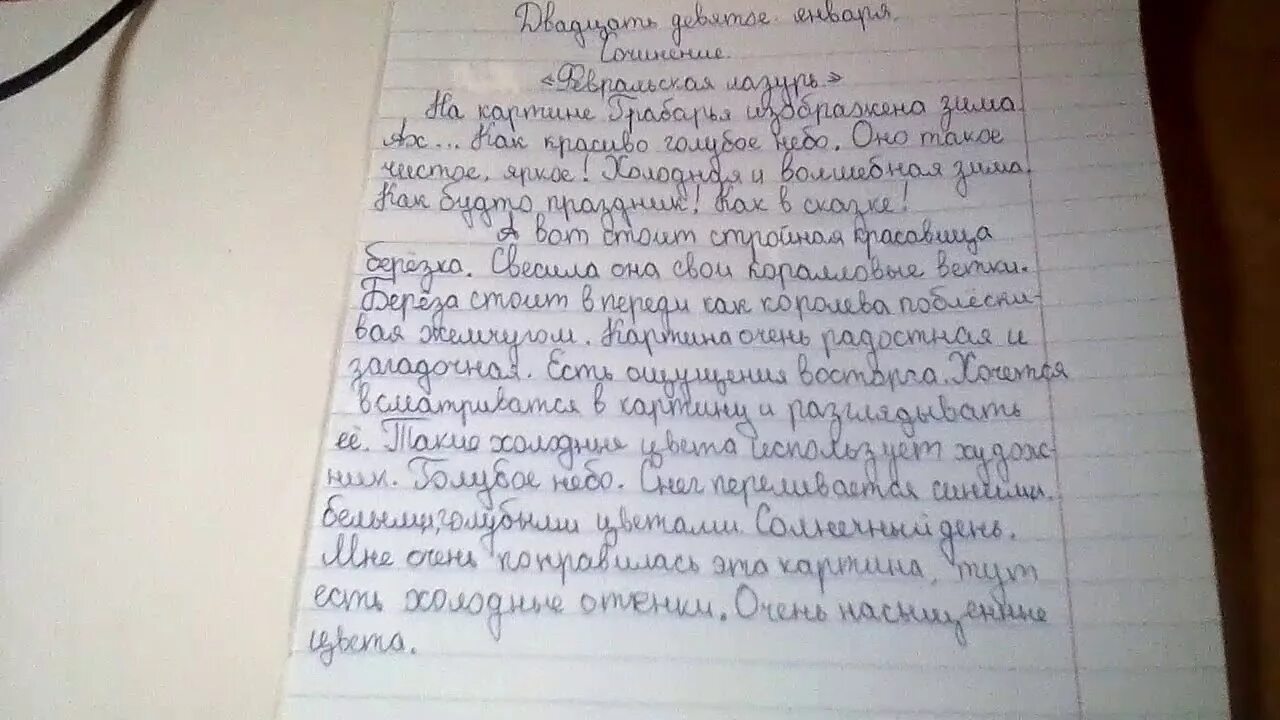 Двадцать девятое января.
Сочинение.
«Февральская лазурь»
На картине Грабарья изображена зима
Ах... Как красиво голубое небо. Оно такое
чистое, яркое! Холодная и волшебная зима
Как будто праздник! Как в сказке!
А вот стоит стройная красавица
берёзка. Свесила она свои коралловые ветки.
Берёза стоит в переди как королева поблёски-
вая жемчугом. Картина очень радостная и
загадочная. Есть ощущения восторга. Хочется
всматриватся в картину и разглядывать
её. Такие холодные цвета использует худож-
ник. Голубое небо. Снег переливается синими,
белыми, голубыми цветами. Солнечный день.
Мне очень понравилась эта картина, тут
есть холодные отенки. Очень насыщенные
цвета.